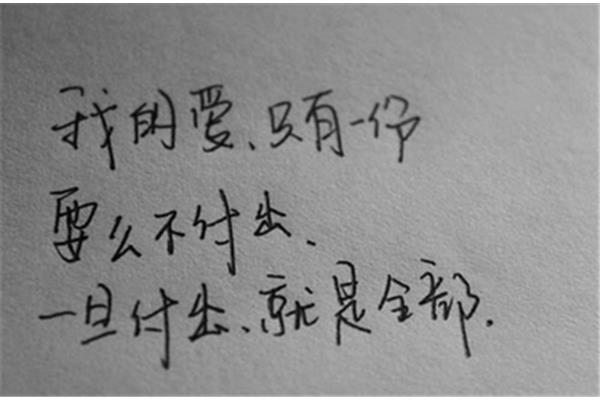 我的爱、只有一份
要么不付出、
一旦付出、就是全部.